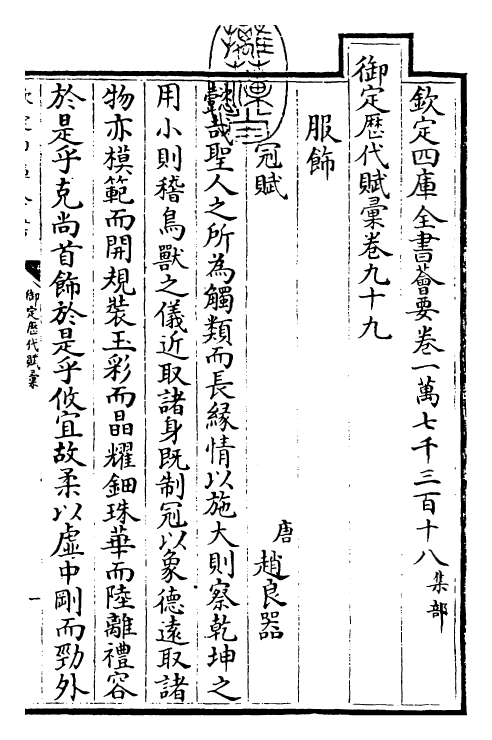 欽定四庫全書薈要卷一萬七千三百十八 集部
御定歴代賦彙卷九十九
服飾
冠賦 唐 趙良器
懿哉聖人之所為觸類而長緣情以施大則察乾坤之
用小則稽鳥獸之儀近取諸身既制冠以象德遠取諸
物亦模範而開規裝玉彩而晶耀鈿珠華而陸離禮容
於是乎克尚首飾於是乎攸宜故柔以虛中剛而勁外
御定歴代賦彙
一